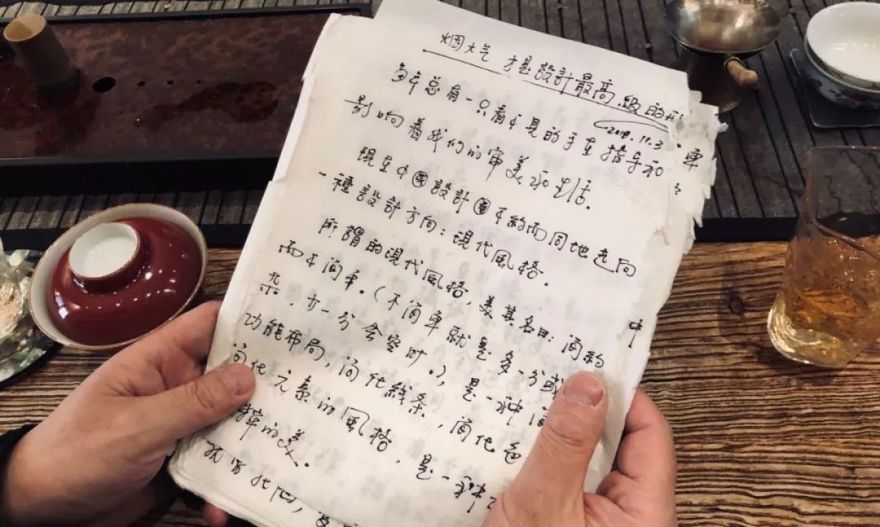 烟火气 才是設計最高.級的
2018.11.3
每年总有一只看不見的手在指导和
影响着我们的审美和生活.
現在中國設計圈不約而同地走向
一種設計方向:現代風格.
所謂的現代風格,美其名曰:简約
而不简单.(不简單就是多一分
杂,少一分会空时.),是一种简
功能布局,简化线条,简化色
简化元素的風格,是一种
粹的美.